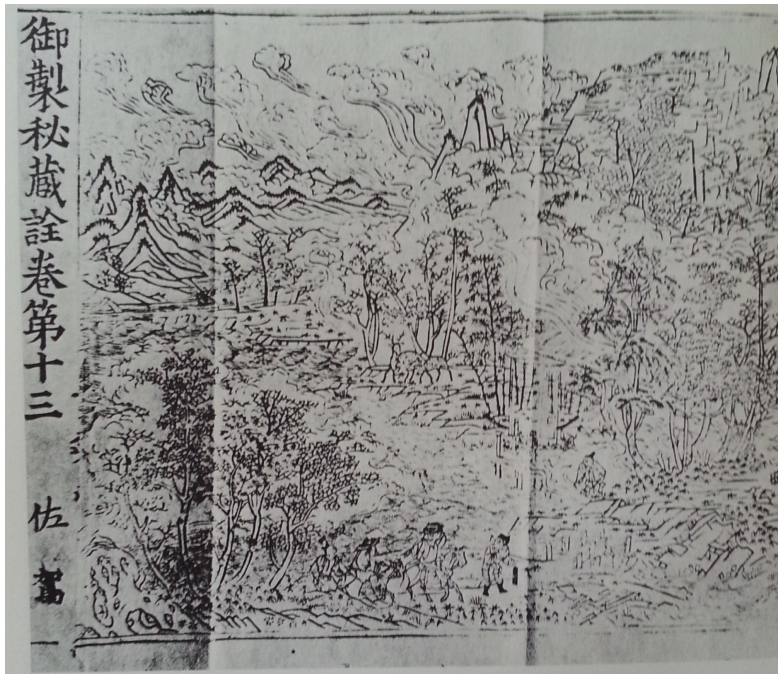 御製秘藏詮卷第十三 佐 駕